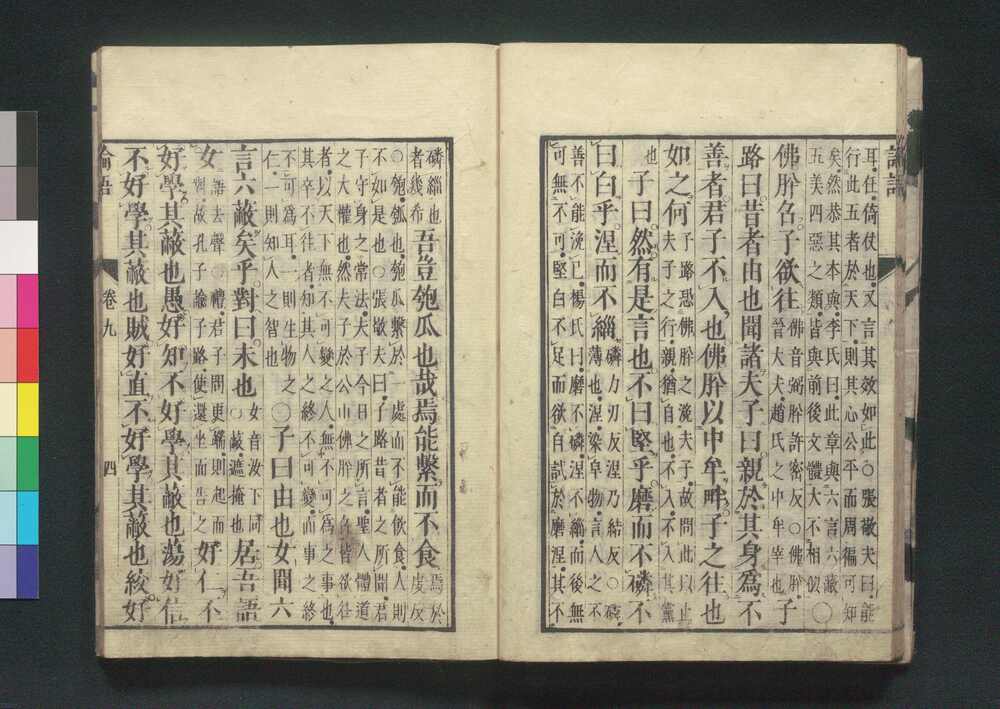 論語
耳任倚仗也又言其效如此○張敬夫曰能
行此五者於天下則其心公平而周徧可知
矣然恭其本與李氏曰此章與六言六蔽
五美四惡之類皆與前後文體大不相似○
佛肸召子欲往
佛音弼肸許密反○佛肸
晉大夫趙氏之中牟宰也
子
路曰昔者由也聞諸夫子曰親於其身爲不
善者君子不入也佛肸以中牟畔子之往也
如之何
子路恐佛肸之浼夫子故問此以止
夫子之行親猶自也不入不入其黨
也
子曰然有是言也不曰堅乎磨而不磷不
曰白乎涅而不緇
磷力刃反涅乃結反○磷
薄也涅染皁物言人之不
善不能浼已楊氏曰磨不磷涅不緇而後無
可無不可堅白不足而欲自試於磨涅其不
磷緇也
者幾希
吾豈匏瓜也哉焉能繫而不食
焉於
虔反
○匏瓠也匏瓜繫於一處而不能飲食人則
不如是也○張敬夫曰子路昔者之所聞君
子守身之常法夫子今日之所言聖人體道
之大權也然夫子於公山佛肸之召皆欲往
者以天下無不可變之人無不可爲之事也
其卒不往者知其人之終不可變而事之終
不可爲耳一則生物之
仁一則知人之智也
○子曰由也女聞六
言六蔽矣乎對曰未也
女音汝下同
○蔽遮掩也
居吾語
女
語去聲○禮君子問更端則起而
對故孔子諭子路使還坐而告之
好仁不
好學其蔽也愚好知不好學其蔽也蕩好信
不好學其蔽也賊好直不好學其蔽也絞好
論語
卷九
四